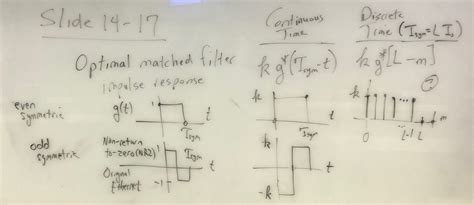 Slide 14-17
Continuous
Time
Discrete
Time (Tsym = L Ts)
Optimal matched filter
impulse response
k g*(Tsym-t)
k g*[L-m]
even
symmetric
g(t)
1
Tsym
t
k
Tsym
t
k
0
L-1
L
m
odd
symmetric
Non-return
to-zero (NRZ)
1
Tsym
t
Original
Ethernet
-1
k
-k
t